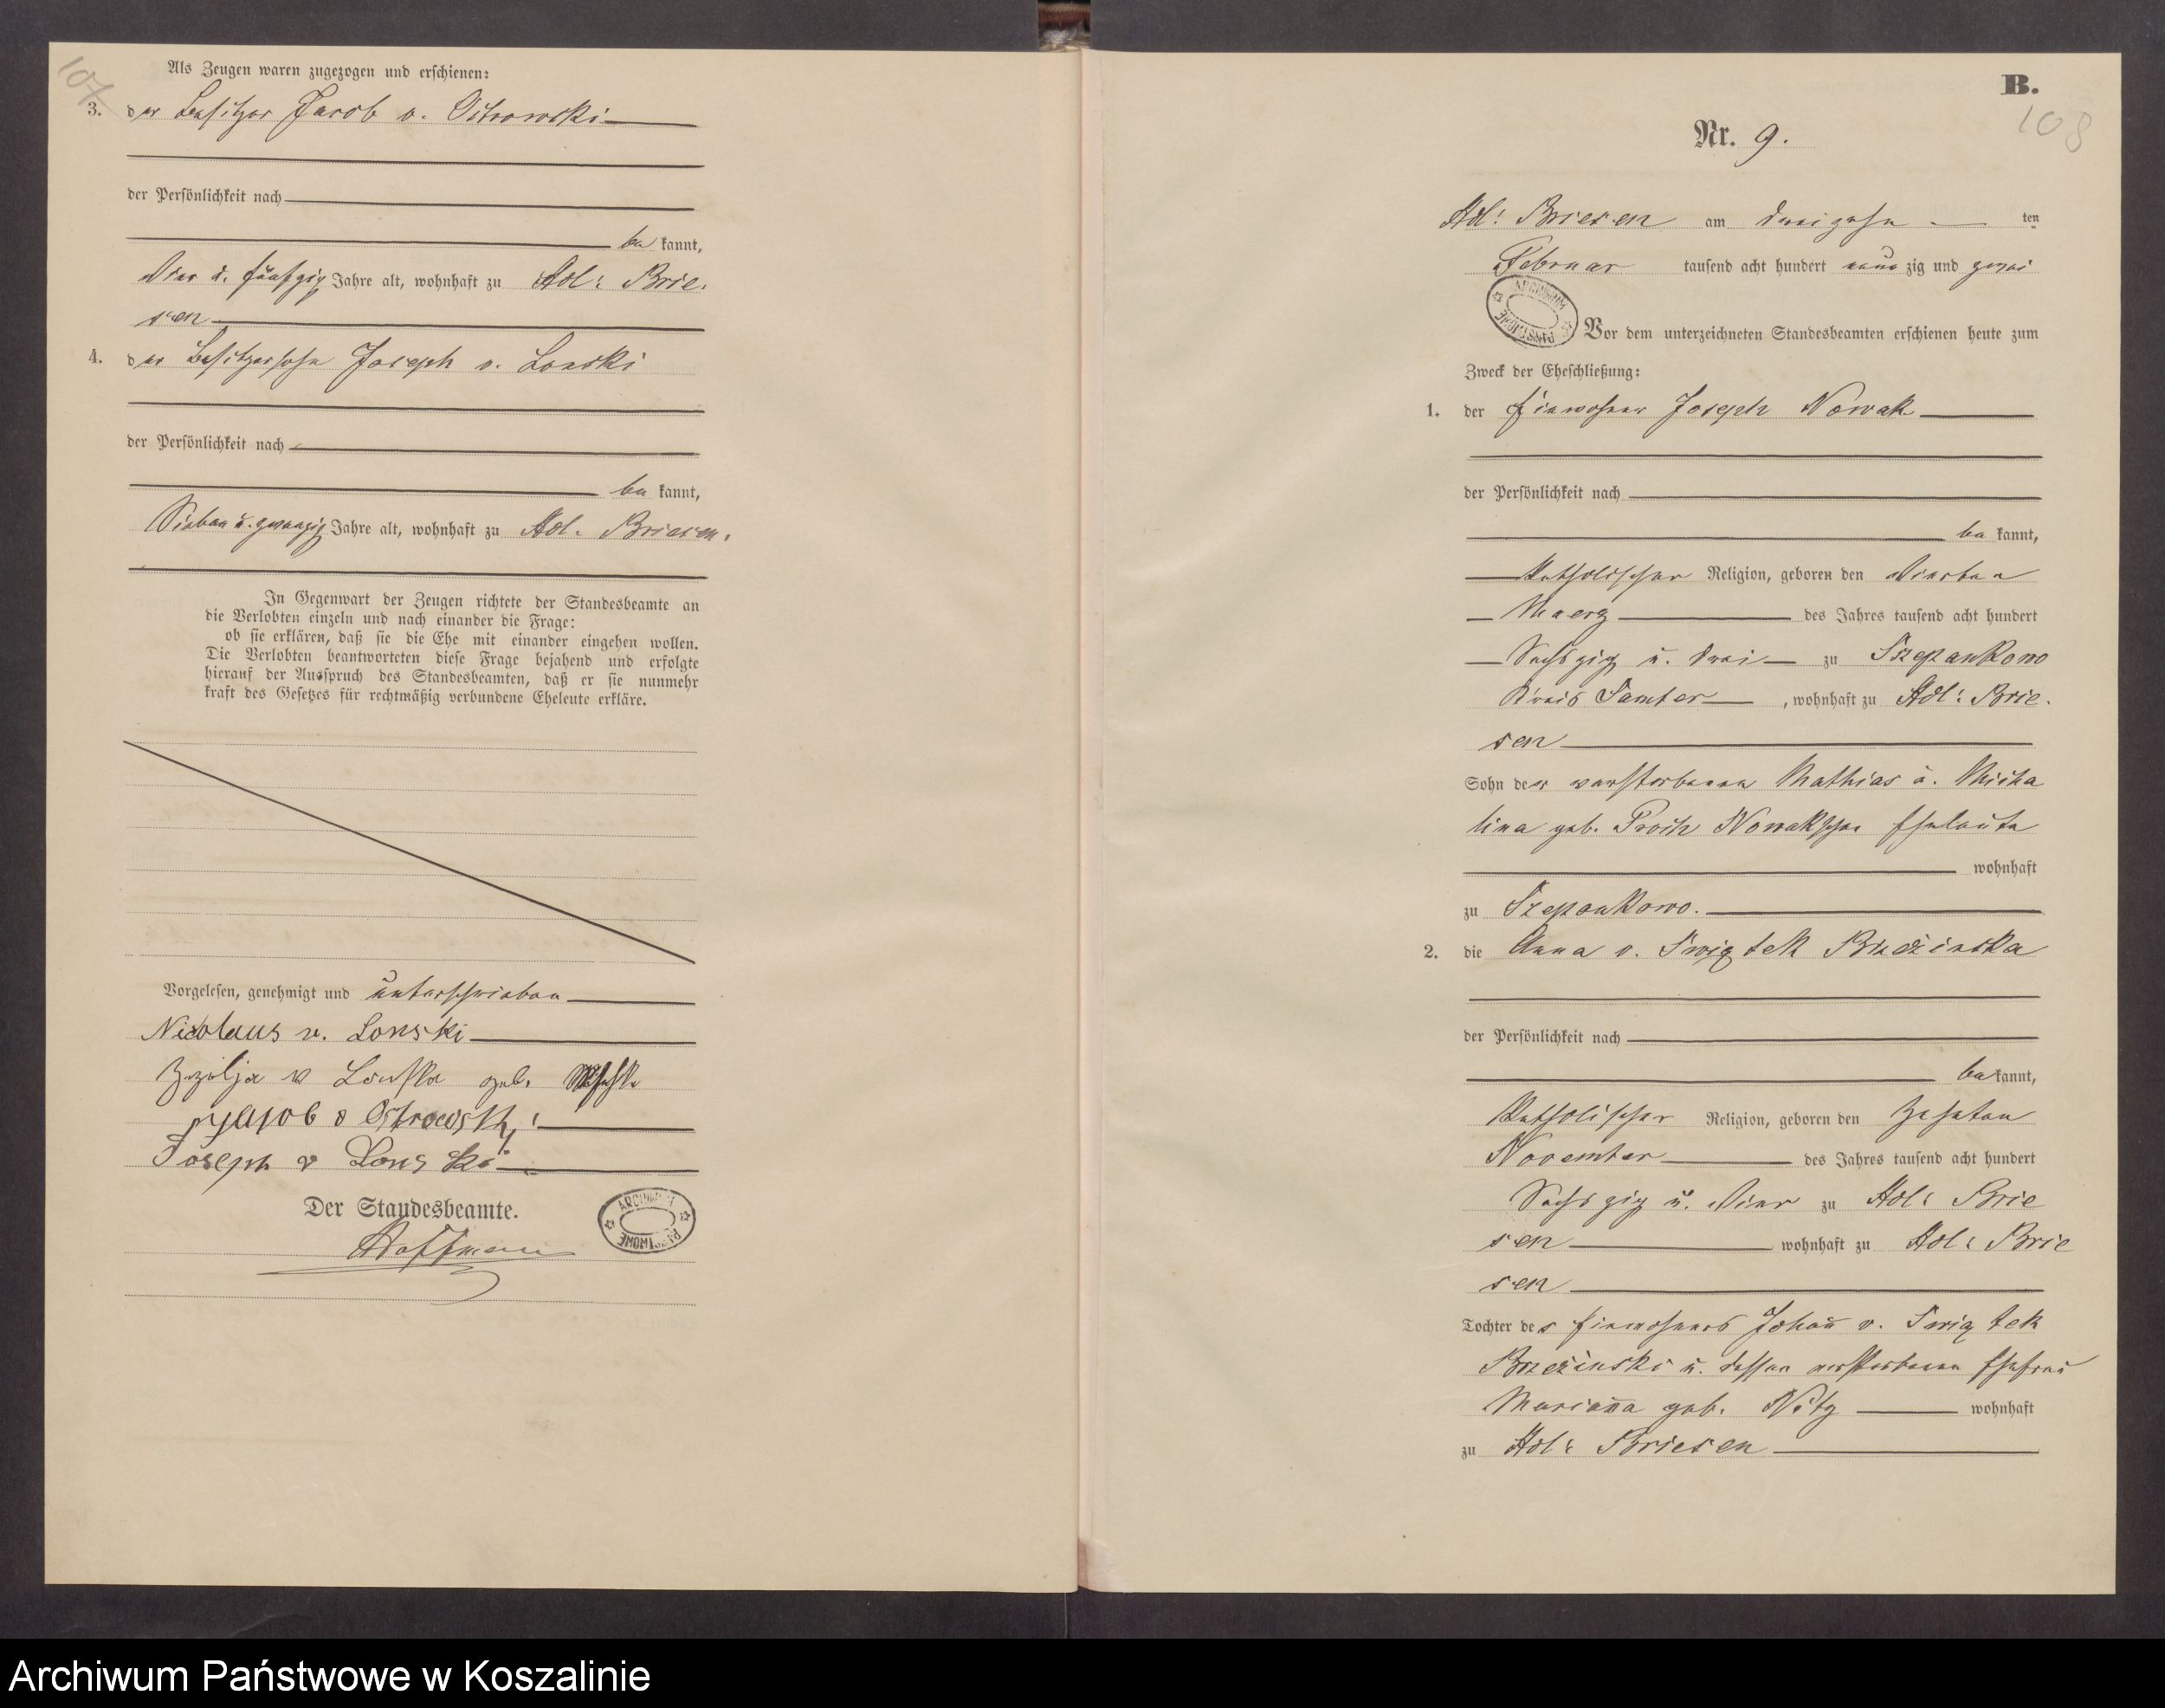 107
Als Zeugen waren zugezogen und erschienen:
3. der Besitzer Jacob v. Ostrowski
der Persönlichkeit nach
be kannt,
vier u. fünfzig Jahre alt, wohnhaft zu Adl: Brie-
sen
4. der Besitzersohn Joseph v. Lonski
der Persönlichkeit nach
be kannt,
Sieben u. zwanzig Jahre alt, wohnhaft zu Adl. Briesen.
In Gegenwart der Zeugen richtete der Standesbeamte an
die Verlobten einzeln und nach einander die Frage:
ob sie erklären, daß sie die Ehe mit einander eingehen wollen.
Die Verlobten beantworteten diese Frage bejahend und erfolgte
hierauf der Ausspruch des Standesbeamten, daß er sie nunmehr
kraft des Gesetzes für rechtmäßig verbundene Eheleute erkläre.
Vorgelesen, genehmigt und unterschrieben
Nicolaus v. Lonski
Zezilja v Lonska geb.
Jakob v Ostrowski
Joseph v Lonski
Der Standesbeamte.
Hoffmann
ARCHIWUM PAŃSTWOWE
B.
108
Nr. 9.
Adl: Briesen am dreizehn ten
Februar tausend acht hundert neun zig und zwei
ARCHIWUM PAŃSTWOWE
Vor dem unterzeichneten Standesbeamten erschienen heute zum
Zweck der Eheschließung:
1. der Einwohner Joseph Nowak
der Persönlichkeit nach
be kannt,
katholischer Religion, geboren den vierten
Maerz des Jahres tausend acht hundert
Sechszig u. drei zu Szepankowo
Kreis Samter, wohnhaft zu Adl: Brie-
sen
Sohn der verstorbenen Mathias u. Micha
lina geb. Proch Nowakschen Eheleute
wohnhaft
zu Szepankowo.
2. die Anna v. Swiątek Brzezinska
der Persönlichkeit nach
be kannt,
katholischer Religion, geboren den zehnten
November des Jahres tausend acht hundert
Sechszig u. vier zu Adl: Brie
sen wohnhaft zu Adl: Brie
sen
Tochter des Einwohners Johañ v. Swiątek
Brzezinski u. dessen verstorbenen Ehefrau
Mariaña geb. Nitz wohnhaft
zu Adl: Briesen
Archiwum Państwowe w Koszalinie